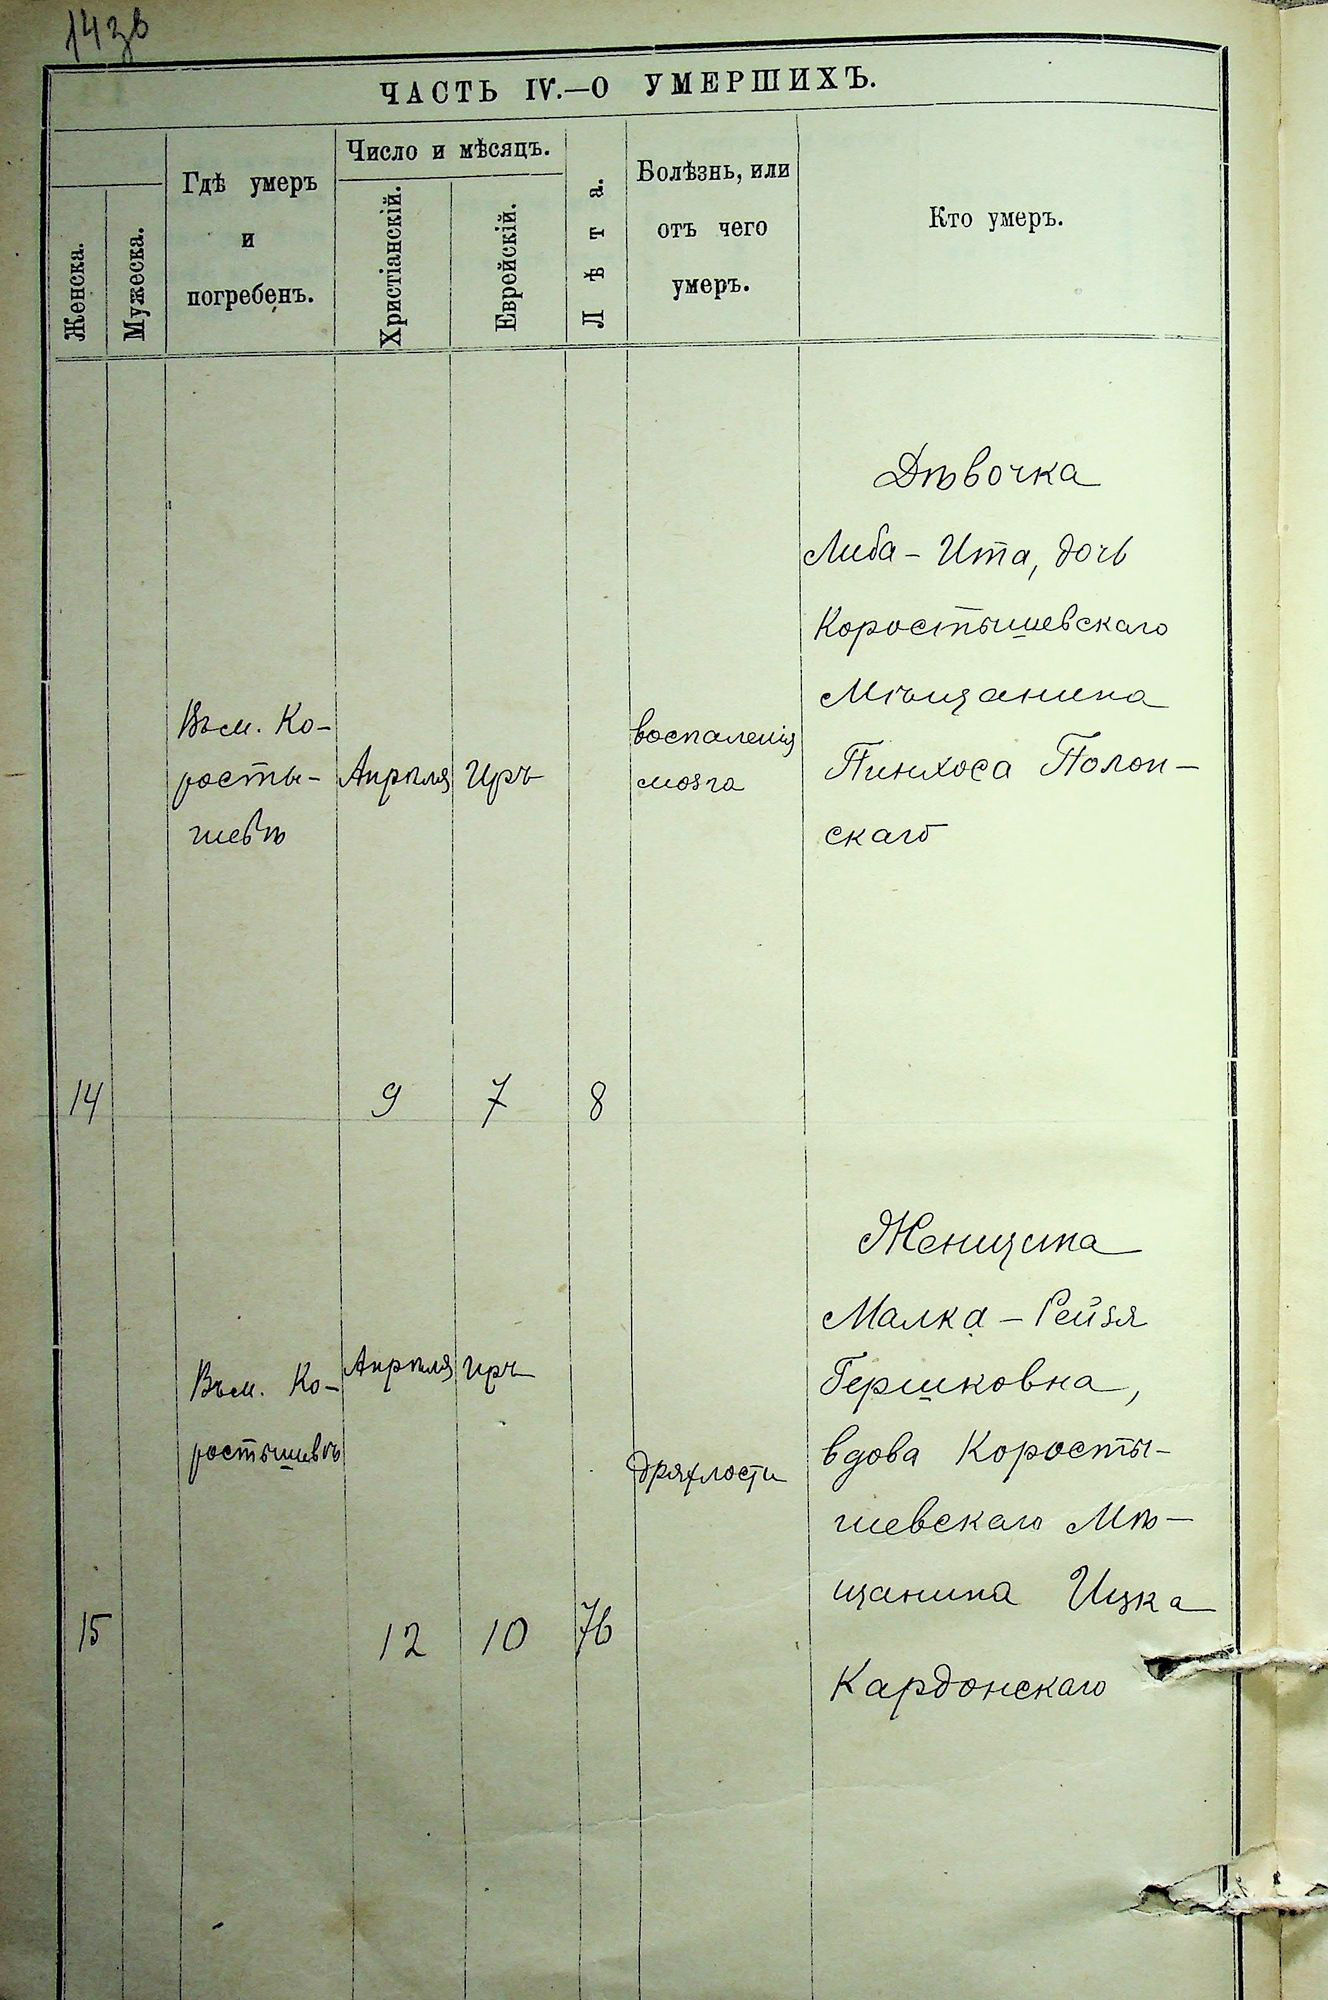 143в
ЧАСТЬ IV.—О УМЕРШИХЪ.
Женска.
Мужеска.
Гдѣ умеръ
и
погребенъ.
Число и мѣсяцъ.
Христіанскій.
Еврейскій.
Лѣта.
Болѣзнь, или
отъ чего
умеръ.
Кто умеръ.
14
Въ м. Ко-
росты-
шевѣ
Апрѣля
9
Иръ
7
8
воспаленія
мозга
Дѣвочка
Либа - Ита, дочь
Коростышевскаго
Мѣщанина
Пинхоса Полон-
скаго
15
Въ м. Ко-
ростышевѣ
Апрѣля
12
Иръ
10
76
дряхлости
Женщина
Малка - Рейзя
Гершковна,
вдова Коросты-
шевскаго Мѣ-
щанина Ицка
Кардонскаго